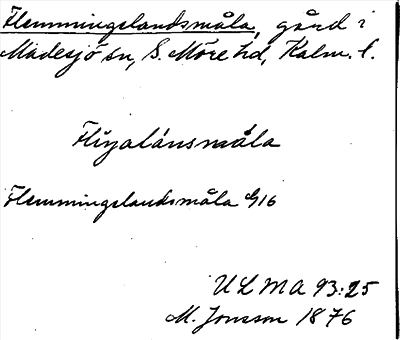 Flemmingelandsmåla, gård i
Madesjö sn, S. Möre hd, Kalm. l.
Flemmingelandsmåla G16
ULMA 93:25
M. Jonsson 1876